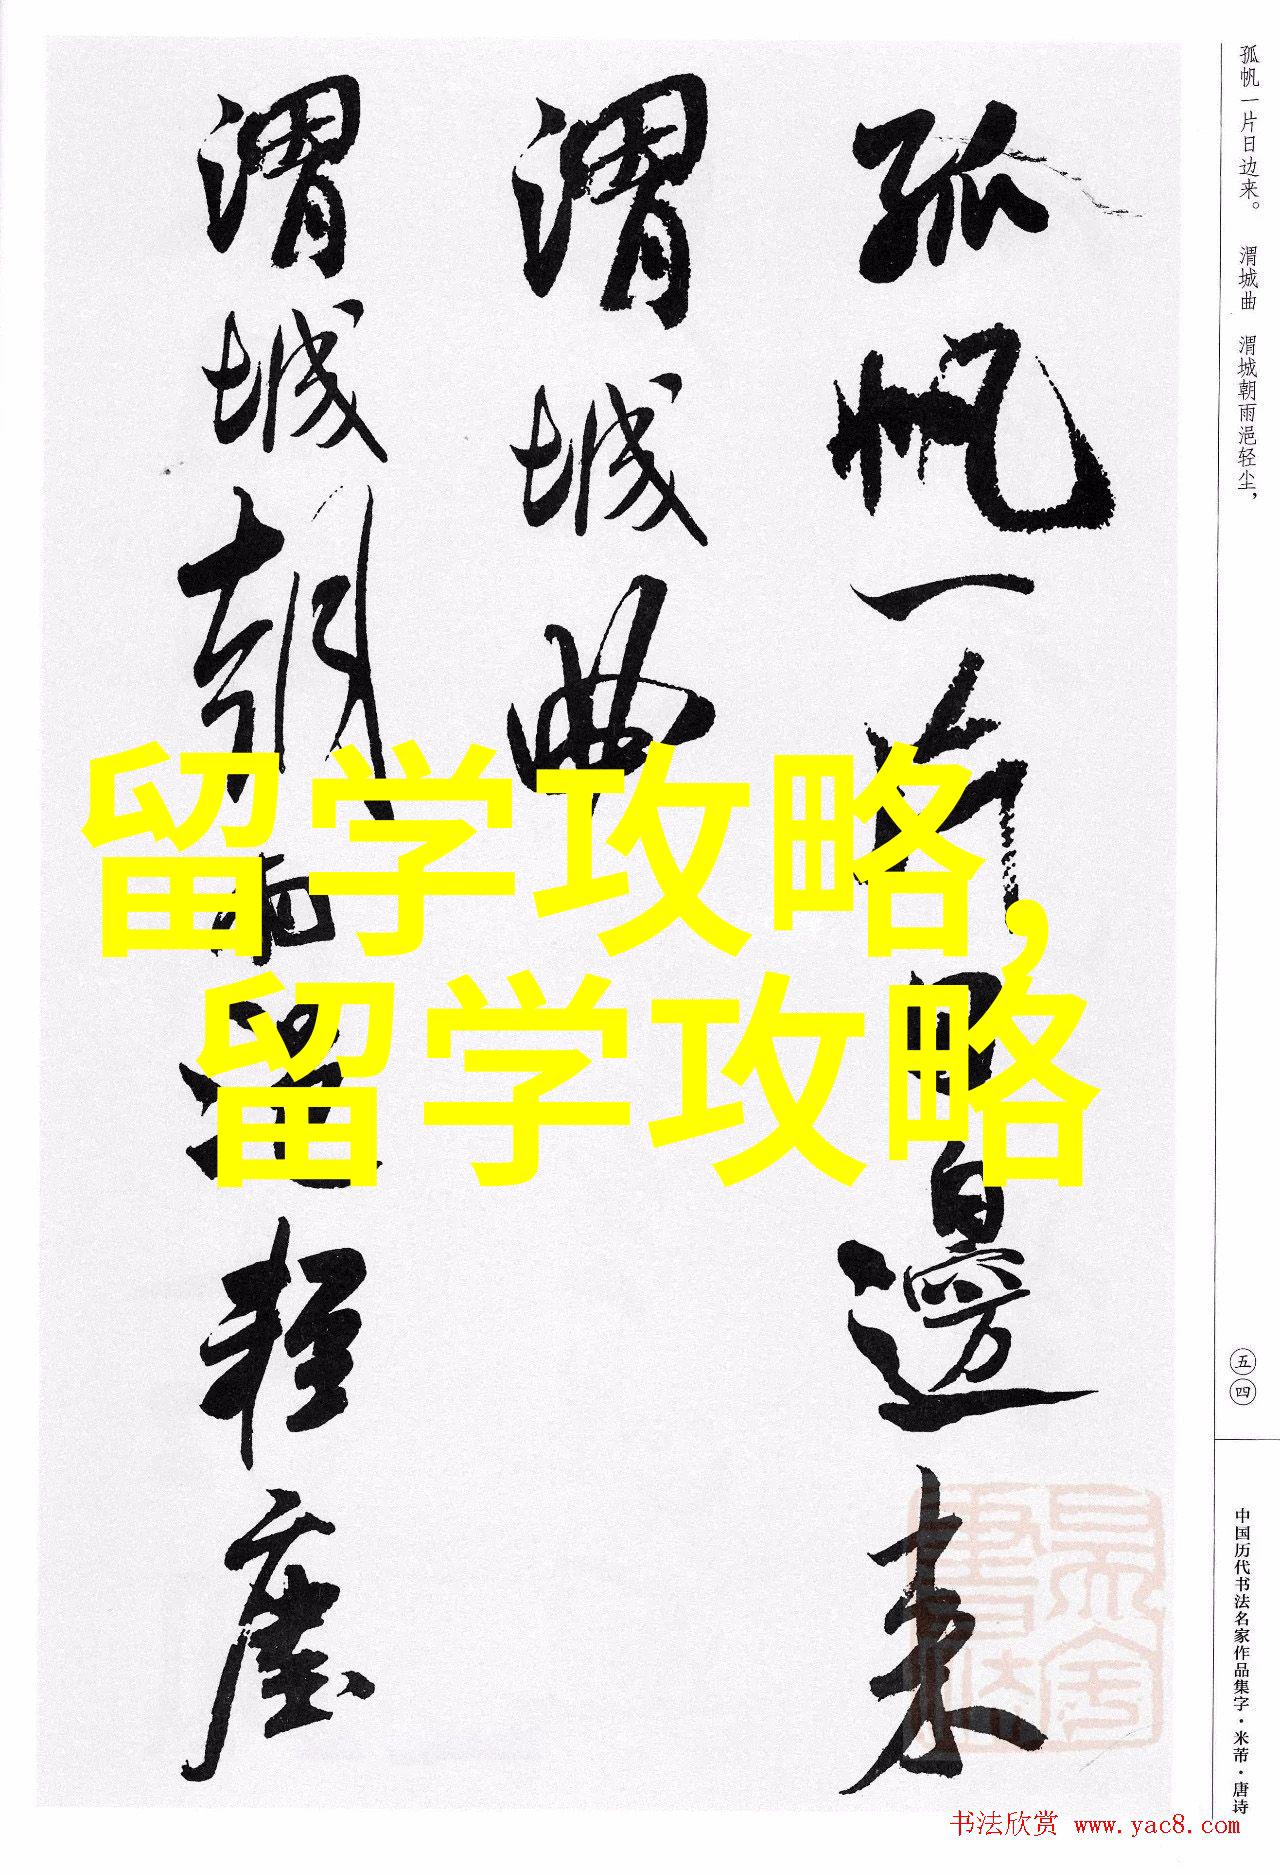 孤帆一片日边来。 渭城曲 渭城朝雨浥轻尘，
孤帆一片日邊来
渭城曲
渭城朝雨浥轻塵
留学攻略，
留学攻略
五四
中国历代书法名家作品集字·米芾·唐诗
书法欣赏 www.yac8.com